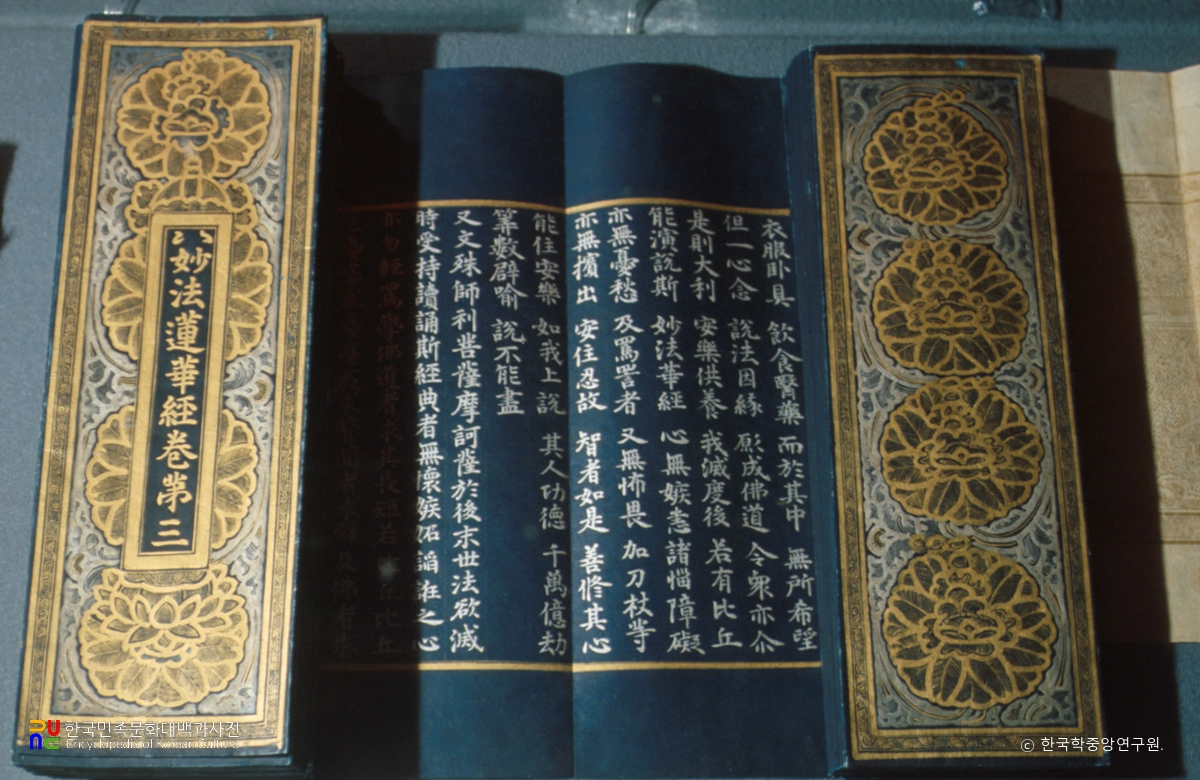 妙法蓮華經卷第三
衣服卧具 飲食醫藥 而於其中 無所希望
但一心念 說法因緣 願成佛道 令衆亦尒
是則大利 安樂供養 我滅度後 若有比丘
能演說斯 妙法華經 心無嫉恚 諸惱障礙
亦無憂愁 及罵詈者 又無怖畏 加刀杖等
亦無擯出 安住忍故 智者如是 善修其心
能住安樂 如我上說 其人功德 千萬億劫
筭數譬喻 說不能盡
又文殊師利菩薩摩訶薩於後末世法欲滅
時受持讀誦斯經典者無懷嫉妬諂誑之心
亦勿輕罵學佛道者求其長短若比丘比丘
한국민족문화대백과사전
Encyclopedia of Korean Culture
© 한국학중앙연구원.